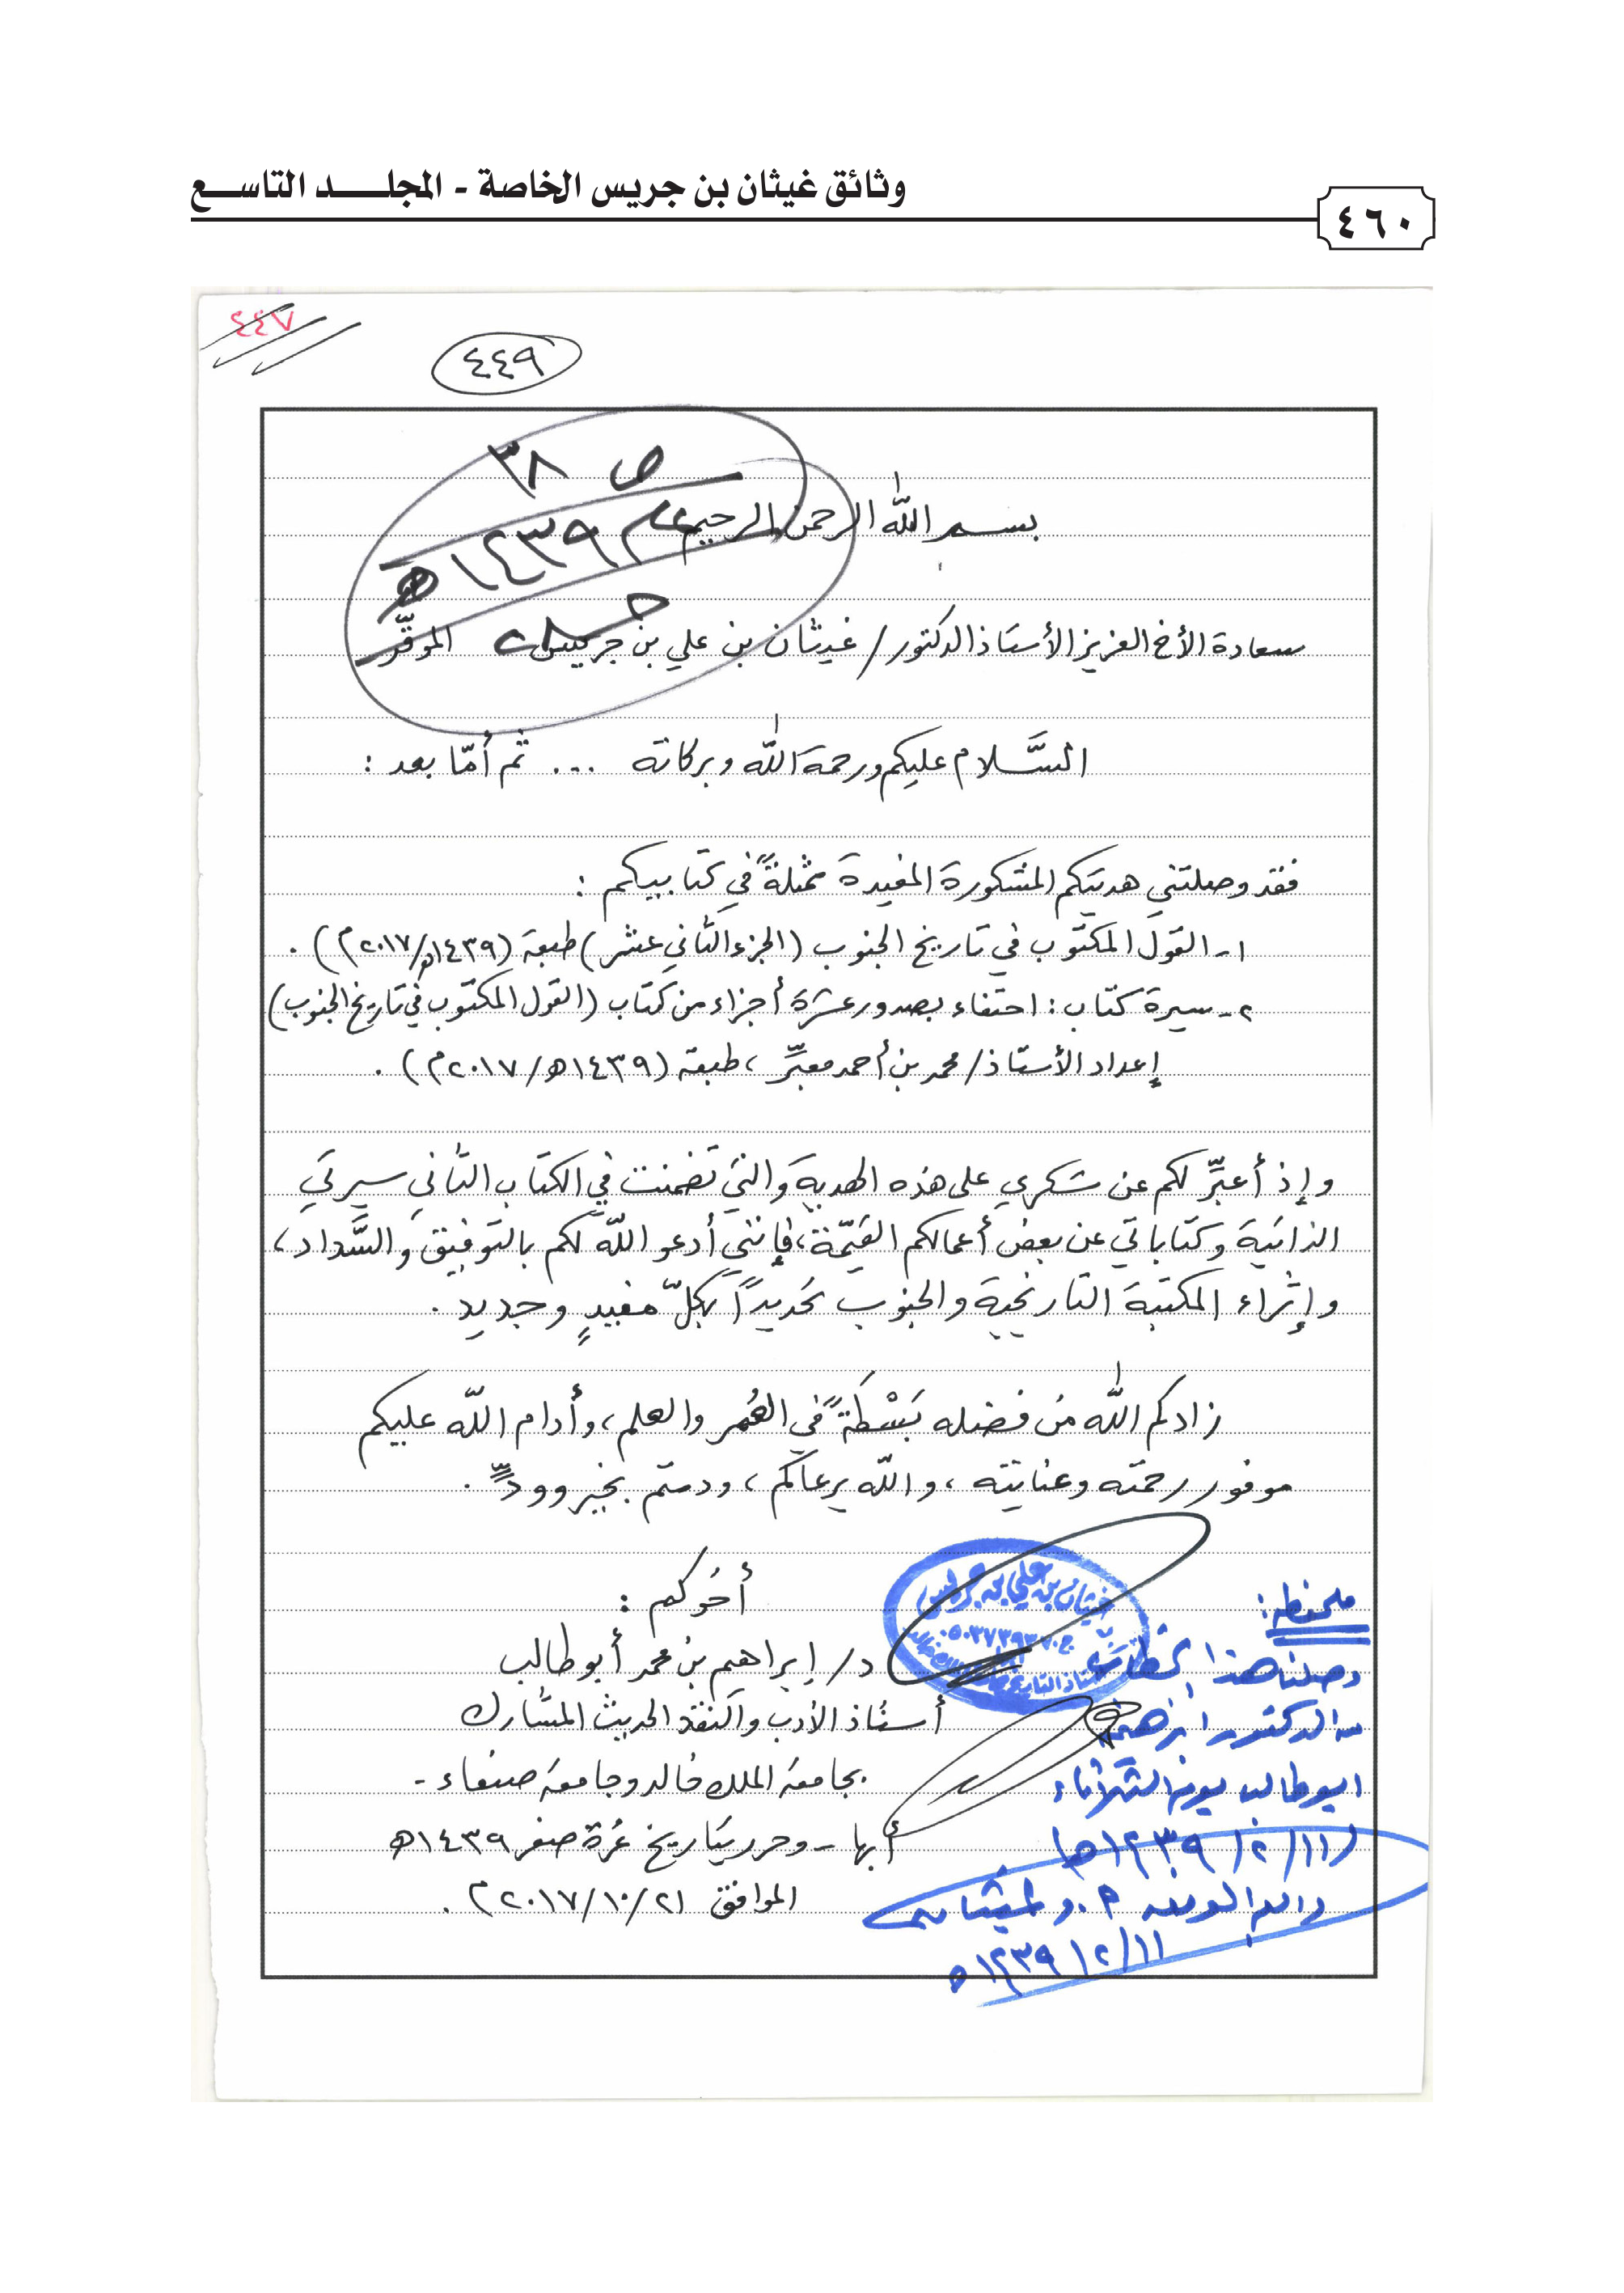 وثائق غيثان بن جريس الخاصة - المجلد التاسع
٤٦٠
٤٤٧
٤٤٩
ص ٣٨
عام ١٤٣٩هـ
بسم الله الرحمن الرحيم
سعادة الأخ العزيز الأستاذ الدكتور / غيثان بن علي بن جريس الموقّر
السَّلام عليكم ورحمة الله وبركاته ... ثم أمّا بعد :
فقد وصلتني هديتكم المشكورة المفيدة ممثلةً في كتابيكم :
١- القول المكتوب في تاريخ الجنوب (الجزء الثاني عشر) طبعة (١٤٣٩هـ/٢٠١٧م) .
٢- سيرة كتاب : احتفاء بصدور عشرة أجزاء من كتاب (القول المكتوب في تاريخ الجنوب)
إعداد الأستاذ / محمد بن أحمد معبِّر ، طبعة (١٤٣٩هـ/٢٠١٧م) .
وإذ أعبِّر لكم عن شكري على هذه الهدية والتي تضمنت في الكتاب الثاني سيرتي
الذاتية وكتاباتي عن بعض أعمالكم القيّمة، فإنني أدعو الله لكم بالتوفيق والسَّداد ،
وإثراء المكتبة التاريخية والجنوب تحديداً بكلّ مفيدٍ وجديد .
زادكم الله من فضله بَسْطَةً في العُمر والعلم ، وأدام الله عليكم
موفور رحمته وعنايته ، والله يرعاكم ، ودمتم بخير وودٍّ .
أخوكم :
د/ إبراهيم بن محمد أبو طالب
أستاذ الأدب والنقد الحديث المشارك
بجامعة الملك خالد وجامعة صنعاء -
أبها - وحرر بتاريخ غرة صفر ١٤٣٩هـ
الموافق ٢١/١٠/٢٠١٧م .
غيثان بن علي بن جريس
ملاحظة :
وصلنا هذا الخطاب
من الدكتور إبراهيم
أبو طالب يوم الثلاثاء
(١١/٢/١٤٣٩هـ)
والله الموفق أ.د. غيثان
١١/٢/١٤٣٩هـ